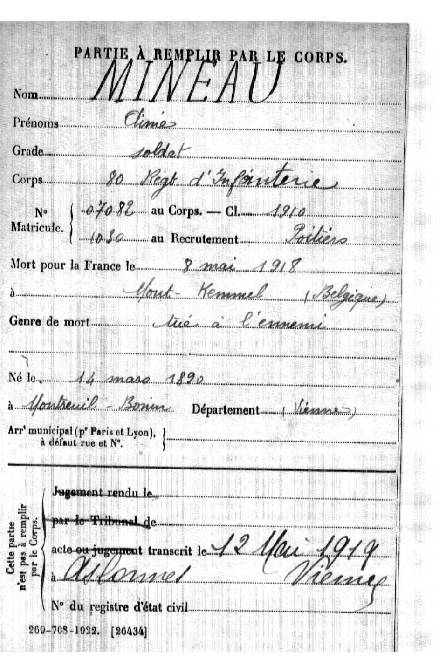 PARTIE À REMPLIR PAR LE CORPS.
Nom MINEAU
Prénoms
Grade soldat
Corps 80 Régt d'Infanterie
N° Matricule. { 07082 au Corps. — Cl. 1910
1030 au Recrutement Poitiers
Mort pour la France le 8 mai 1918
à Mont Kemmel (Belgique)
Genre de mort tué à l'ennemi
Né le 14 mars 1890
à Montreuil-Bonin Département (Vienne)
Arrt municipal (pr Paris et Lyon), à défaut rue et N°. }
Cette partie n'est pas à remplir par le Corps.
Jugement rendu le
par le Tribunal de
acte ou jugement transcrit le 12 Mai 1919
à Aslonnes Vienne
N° du registre d'état civil
269-708-1922. [26434]